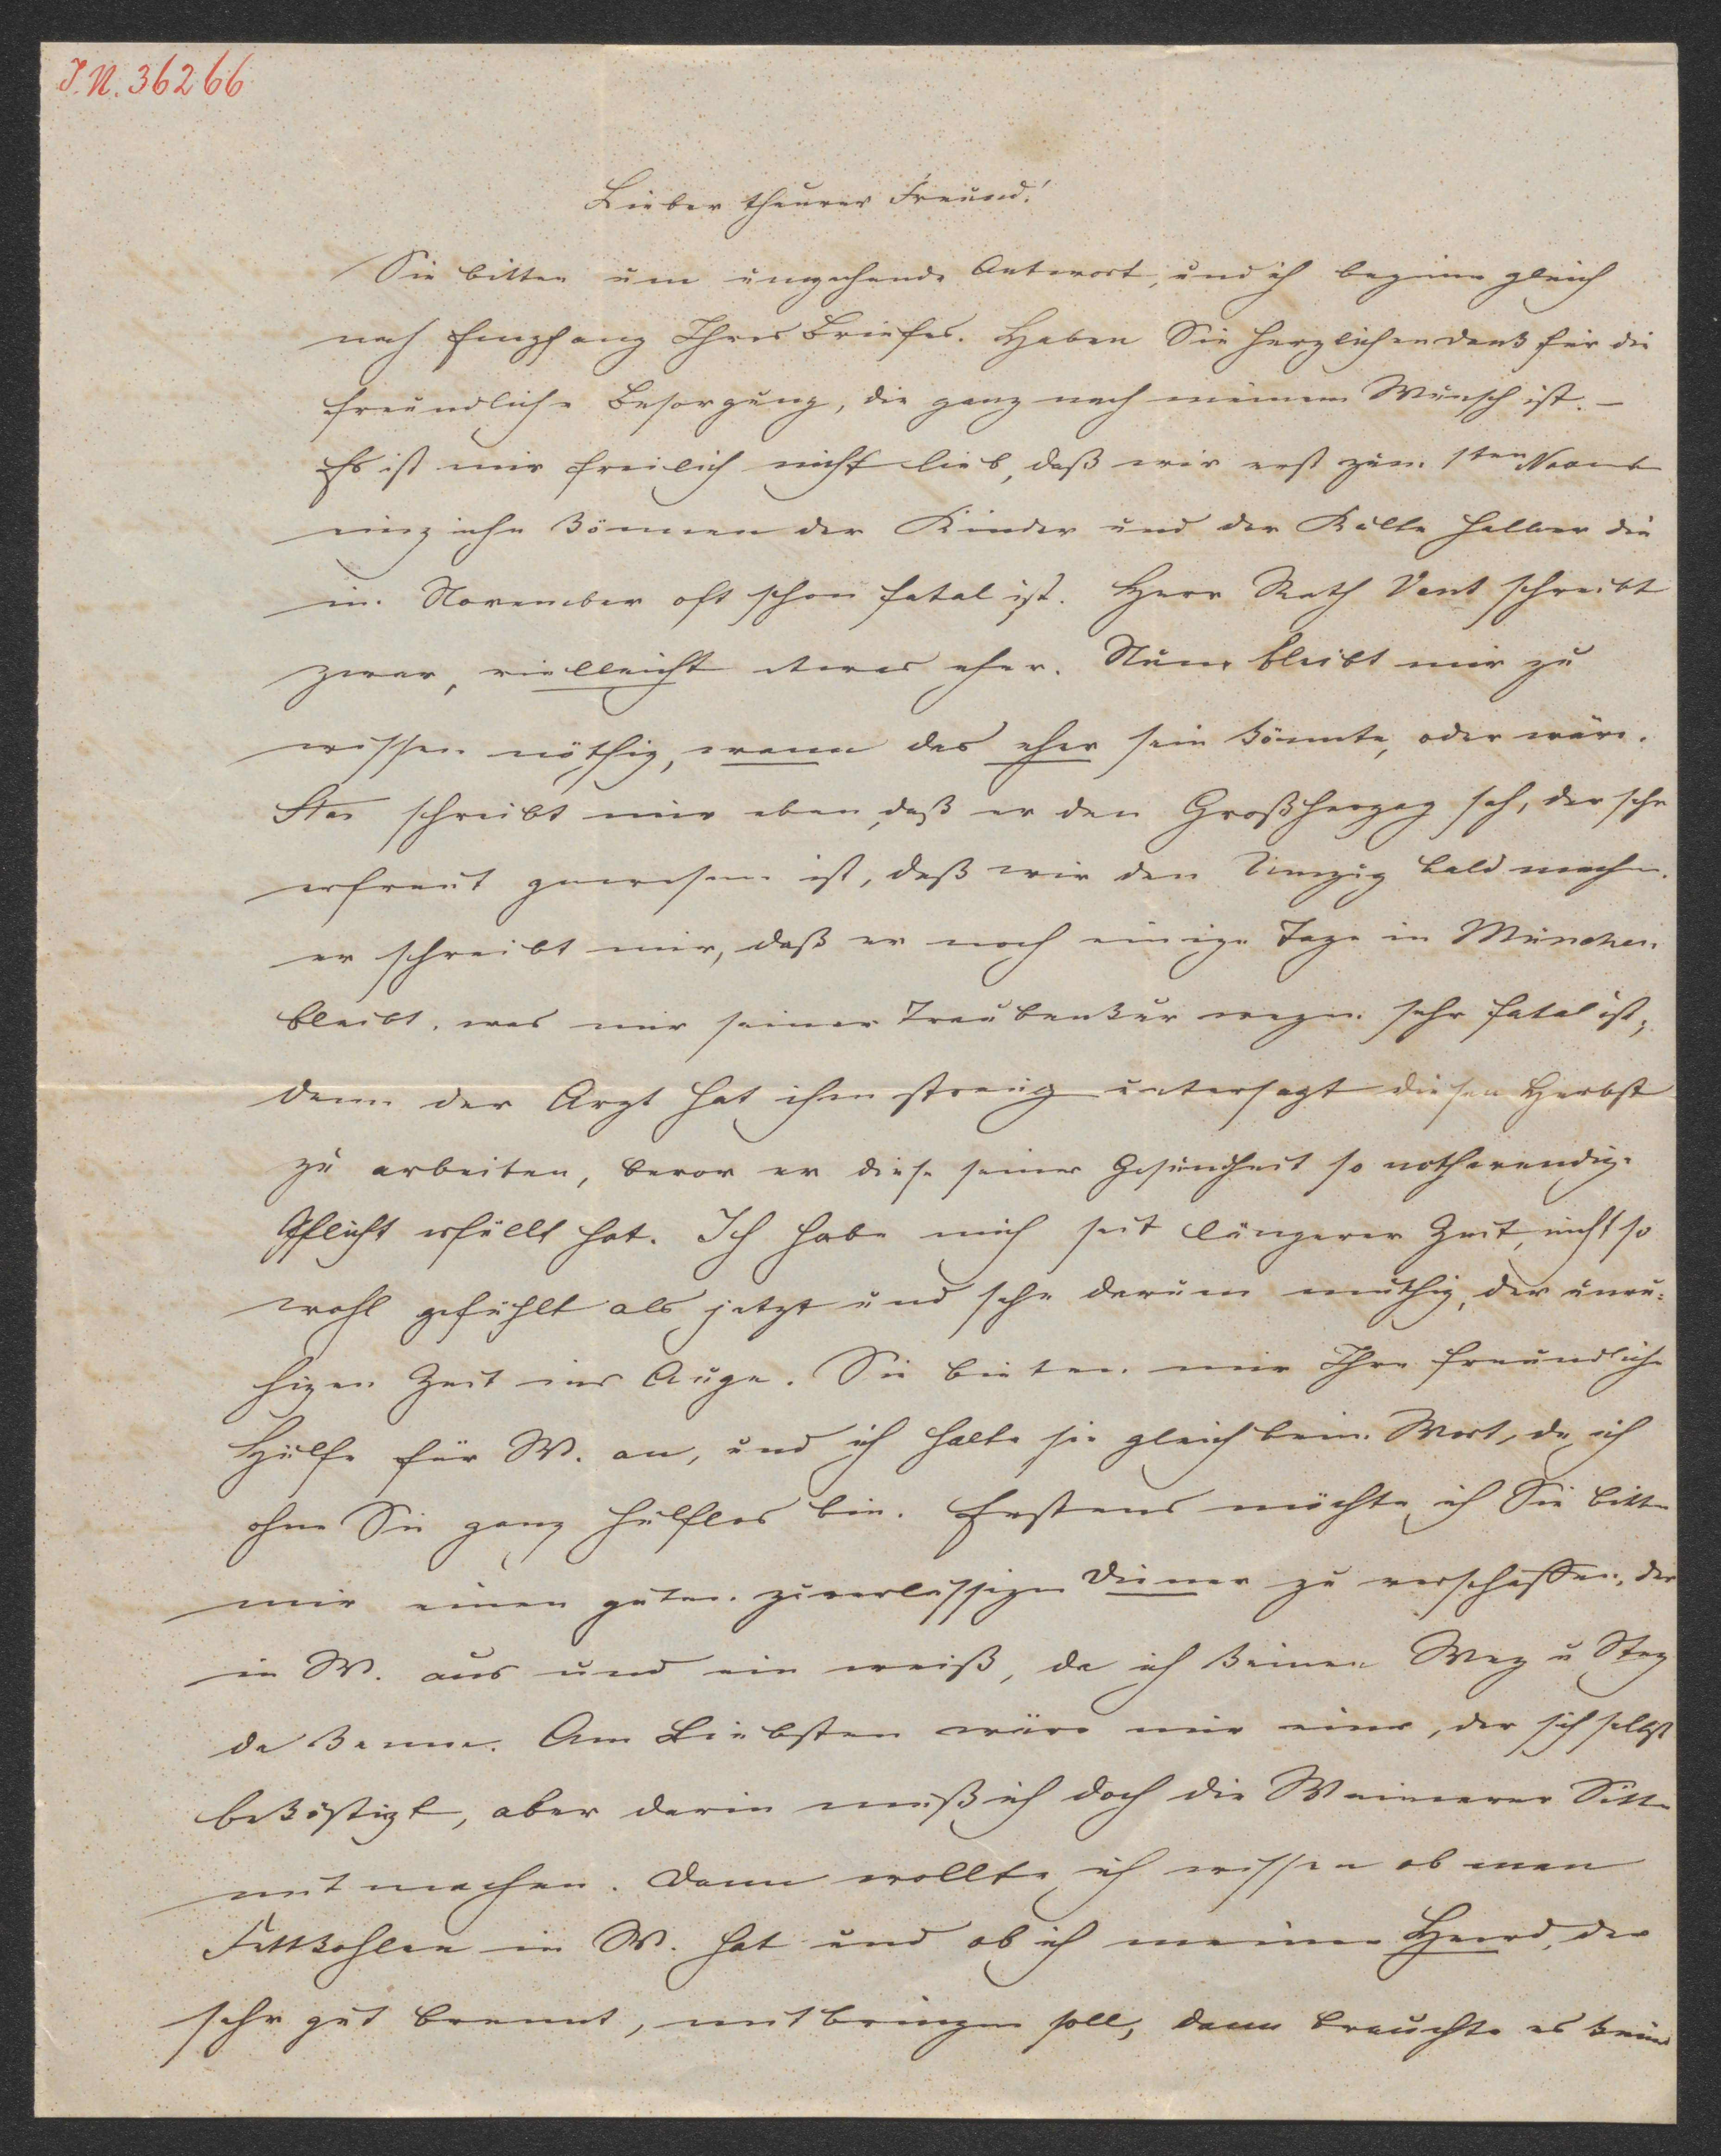 I.N. 36266
Lieber theurer Freund!
Sie bitten um umgehende Antwort, und ich beginne gleich
nach Empfang Ihres Briefes. Haben Sie herzlichen Dank für die
freundliche Besorgung, die ganz nach meinem Wunsch ist. –
Es ist mir freilich nicht lieb, daß wir erst zum 1ten
einziehn können der Kinder und der Kälte halber die
im November oft schon fatal ist. Herr Rath Vent schreibt
zwar, vielleicht etwas eher. Nun bleibt mir zu
wissen nöthig, wann das eher sein könnte, oder wäre.
schreibt mir eben, daß er den Großherzog sah, der sehr
erfreut gewesen ist, daß wir den Umzug bald machen.
er schreibt mir, daß er noch einige Tage in München
bleibt, was mir seiner Traubenkur wegen sehr fatal ist,
denn der Arzt hat ihm streng untersagt diesen Herbst
zu arbeiten, bevor er diese seiner Gesundheit so nothwendige
Pflicht erfüllt hat. Ich habe mich seit längerer Zeit, nicht so
wohl gefühlt als jetzt und sehe darum muthig, der unru-
higen Zeit ins Auge. Sie bieten mir Ihre freundliche
Hülfe für W. an, und ich halte sie gleich beim Wort, da ich
ohne Sie ganz hülflos bin. Erstens möchte ich Sie bitten
mir einen guten zuverlässigen Diener zu verschaffen, der
in W. aus und ein weiß, da ich keinen Weg u Steg
da kenne. Am Liebsten wäre mir einer, der sich selbst
beköstigt, aber darin muß ich doch die Weimarer Sitte
mit machen. Dann wollte ich wissen ob man
Fettkohlen in W. hat und ob ich meinen Heerd, der
sehr gut brennt, mitbringen soll, dann brauchte es keine